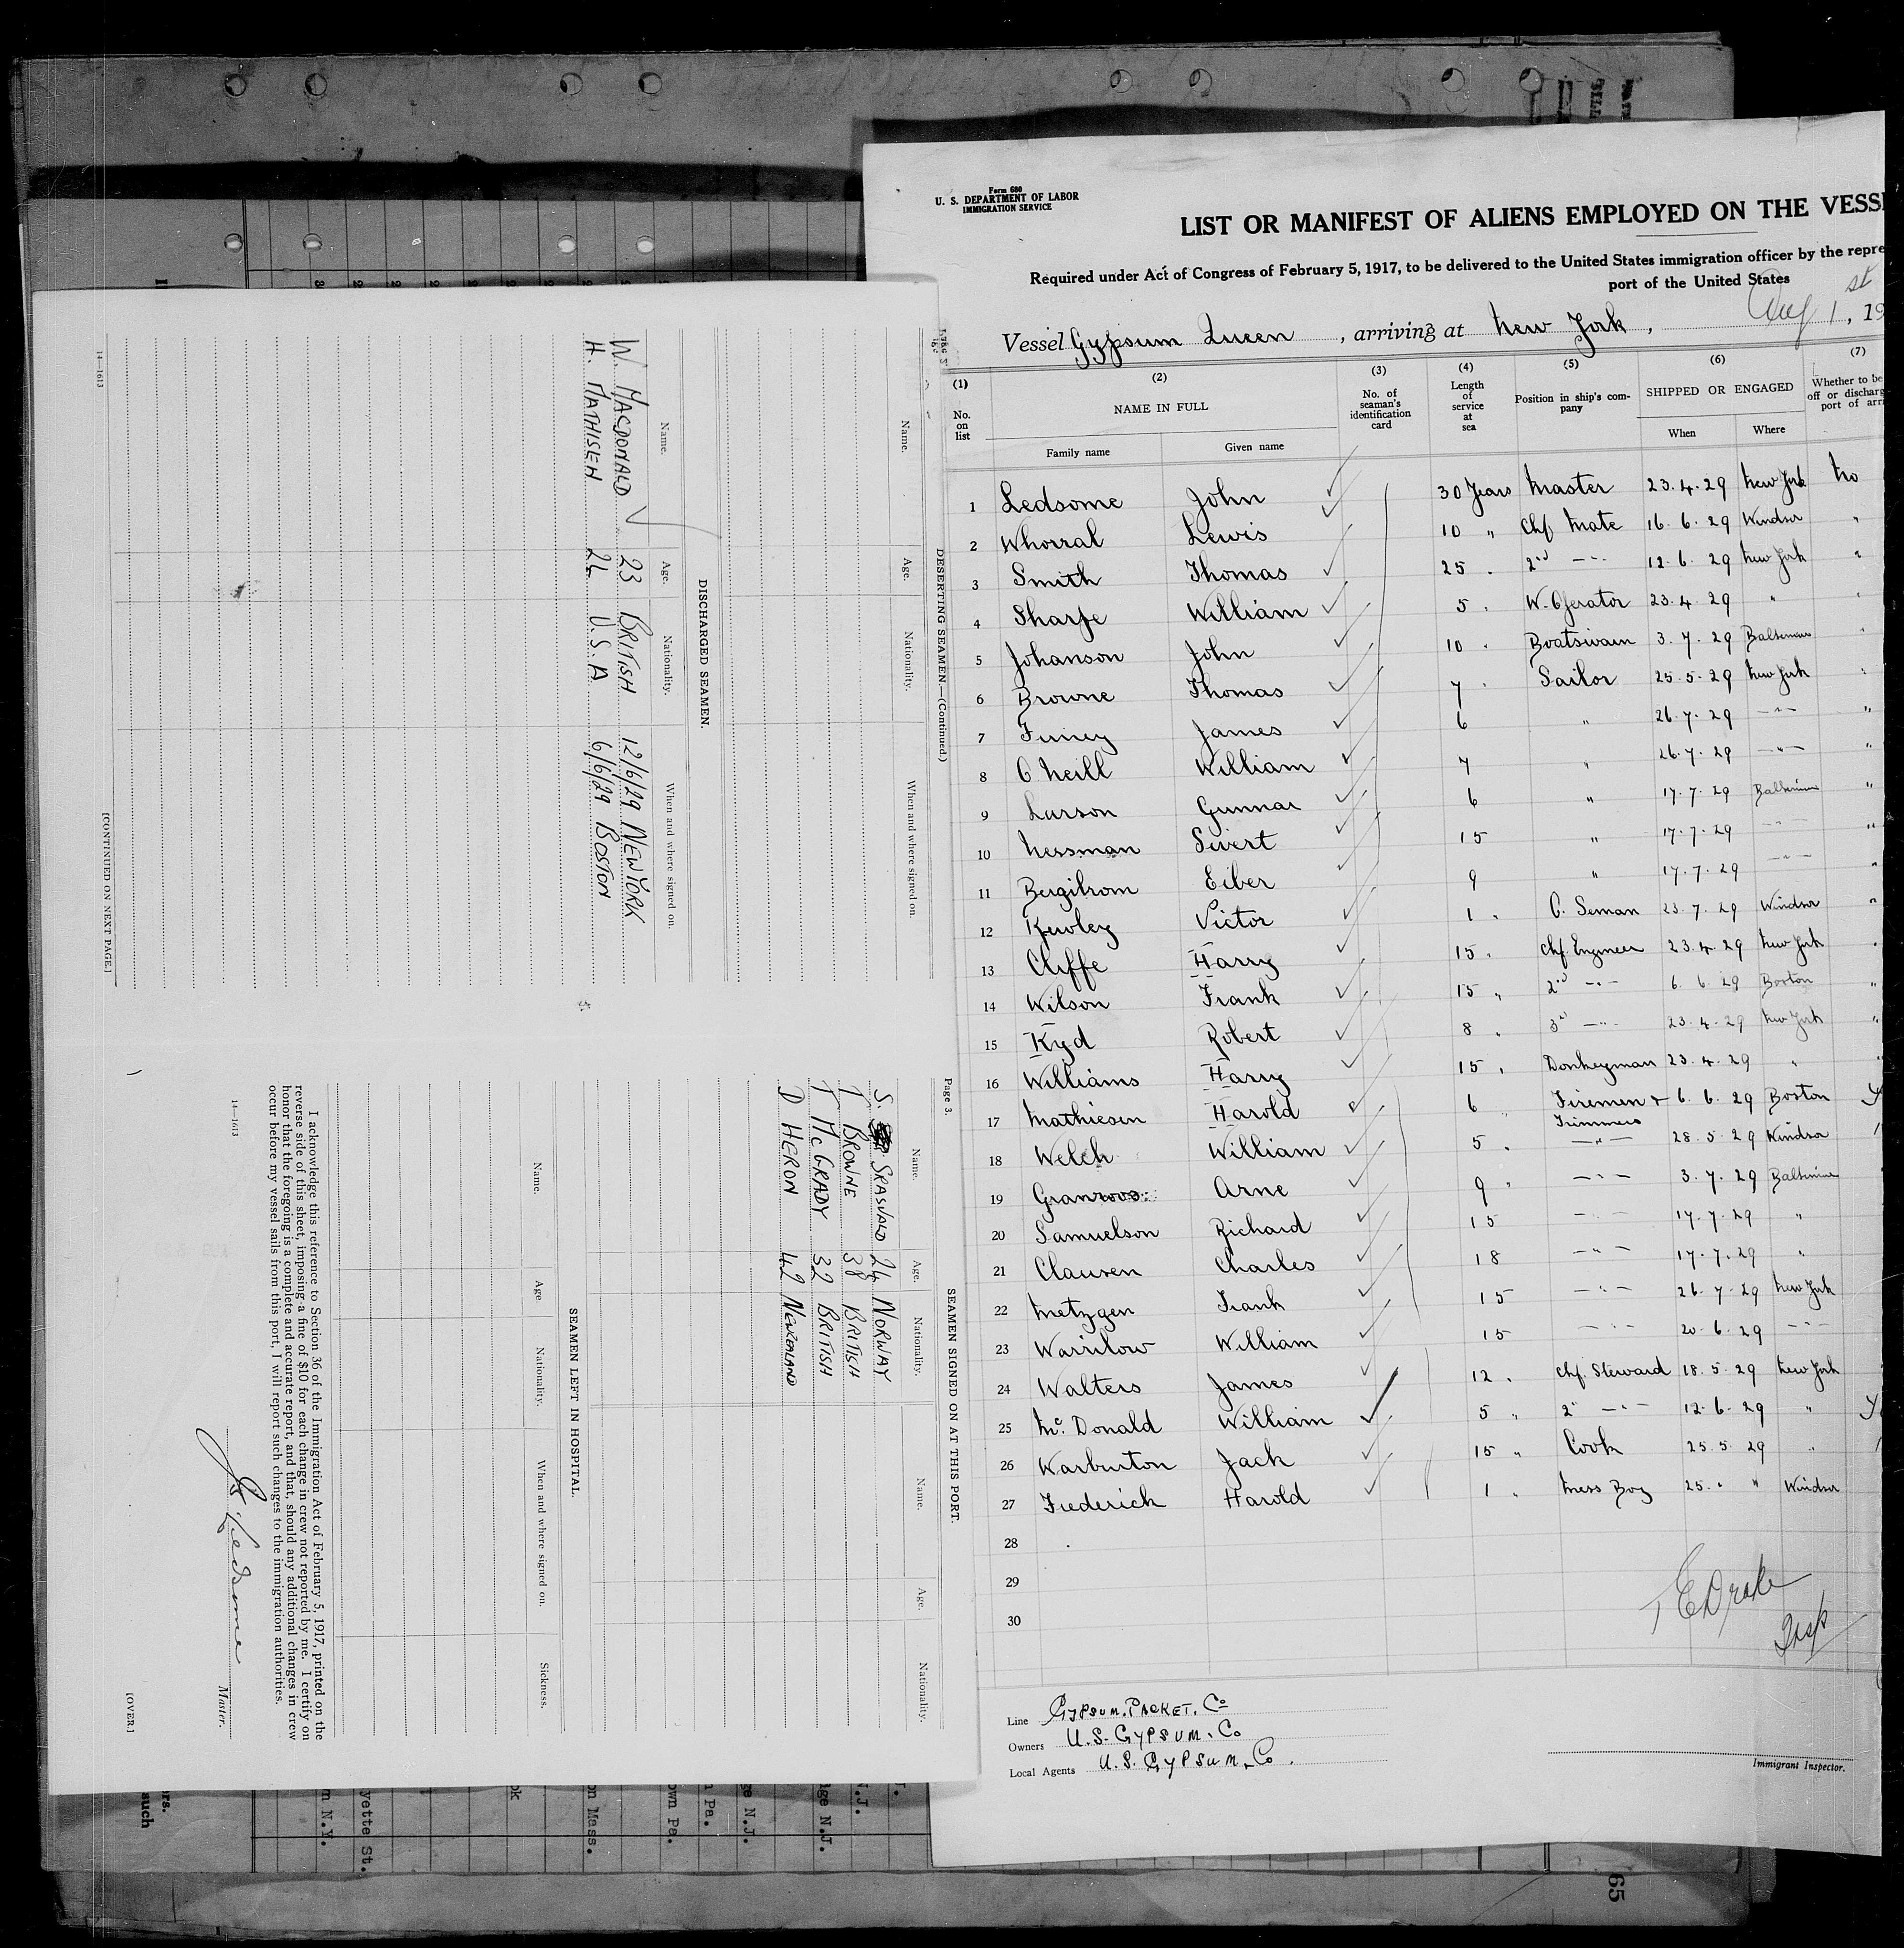 Form 680
U. S. DEPARTMENT OF LABOR
IMMIGRATION SERVICE
LIST OR MANIFEST OF ALIENS EMPLOYED ON THE VESS
Required under Act of Congress of February 5, 1917, to be delivered to the United States immigration officer by the repre
port of the United States
Vessel Gypsum Queen, arriving at New York, Aug 1st, 19
(1) (2) (3) (4) (5) (6) (7)
No. on list NAME IN FULL No. of seaman's identification card Length of service at sea Position in ship's company SHIPPED OR ENGAGED Whether to be off or discharg port of arri
Family name Given name When Where
1 Ledsome John 30 Years Master 23.4.29 New York No
2 Whorral Lewis 10 " Chf Mate 16.6.29 Windsor "
3 Smith Thomas 25 " 2nd -"- 12.6.29 New York "
4 Sharpe William 5 " W. Operator 23.4.29 " "
5 Johanson John 10 " Boatswain 3.7.29 Baltimore "
6 Browne Thomas 7 " Sailor 25.5.29 New York "
7 James 6 " 26.7.29 -"- "
8 O'Neill William 7 " 26.7.29 -"- "
9 Larson Gunnar 6 " 17.7.29 Baltimore "
10 Nessman Sivert 15 " 17.7.29 -"- "
11 Eiber 9 " 17.7.29 -"- "
12 Kewley Victor 1 " O. Seman 23.7.29 Windsor "
13 Cliffe Harry 15 " Chf. Engineer 23.4.29 New York "
14 Wilson Frank 15 " 2nd -"- 6.6.29 Boston "
15 Kyd Robert 8 " 3rd -"- 23.4.29 New York "
16 Williams Harry 15 " Donkeyman 23.4.29 " "
17 Mathiesen Harold 6 " Firemen + Trimmers 6.6.29 Boston
18 Welch William 5 " -"- 28.5.29 Windsor
19 Arne 9 " -"- 3.7.29 Baltimore
20 Samuelson Richard 15 -"- 17.7.29 "
21 Clausen Charles 18 -"- 17.7.29 "
22 Metzgen Frank 15 -"- 26.7.29 New York
23 Warrilow William 15 -"- 20.6.29 -"-
24 Walters James 12 " Chf. Steward 18.5.29 New York
25 Mc. Donald William 5 " 2nd -"- 12.6.29 "
26 Warburton Jack 15 " Cook 25.5.29 "
27 Frederick Harold 1 " Mess Boy 25. " " Windsor
28
29
30
E Drake
Insp
Line Gypsum. Packet. Co
Owners U.S. Gypsum. Co
Local Agents U.S. Gypsum. Co.
Immigrant Inspector.
DESERTING SEAMEN—(Continued.)
Name. Age. Nationality. When and where signed on.
DISCHARGED SEAMEN.
Name. Age. Nationality. When and where signed on.
W. MACDONALD 23 BRITISH 12/6/29 NEW YORK
H. MATHISEN 24 U.S.A 6/6/29 BOSTON
[CONTINUED ON NEXT PAGE.]
14—1613
Page 3.
SEAMEN SIGNED ON AT THIS PORT.
Name. Age. Nationality. Name. Age. Nationality.
S. 24 NORWAY
T BROWNE 38 BRITISH
T McGRADY 32 BRITISH
D HERON 42 NEWZEALAND
SEAMEN LEFT IN HOSPITAL.
Name. Age Nationality. When and where signed on. Sickness.
I acknowledge this reference to Section 36 of the Immigration Act of February 5, 1917, printed on the
reverse side of this sheet, imposing a fine of $10 for each change in crew not reported by me. I certify on
honor that the foregoing is a complete and accurate report, and that, should any additional changes in crew
occur before my vessel sails from this port, I will report such changes to the immigration authorities.
Ledsome
Master.
14—1613
[OVER.]
rs.
such
n N.Y.
yette St.
ok
n Mass.
own Pa.
Pa.
e N.J.
age N.J.
N.J.
65